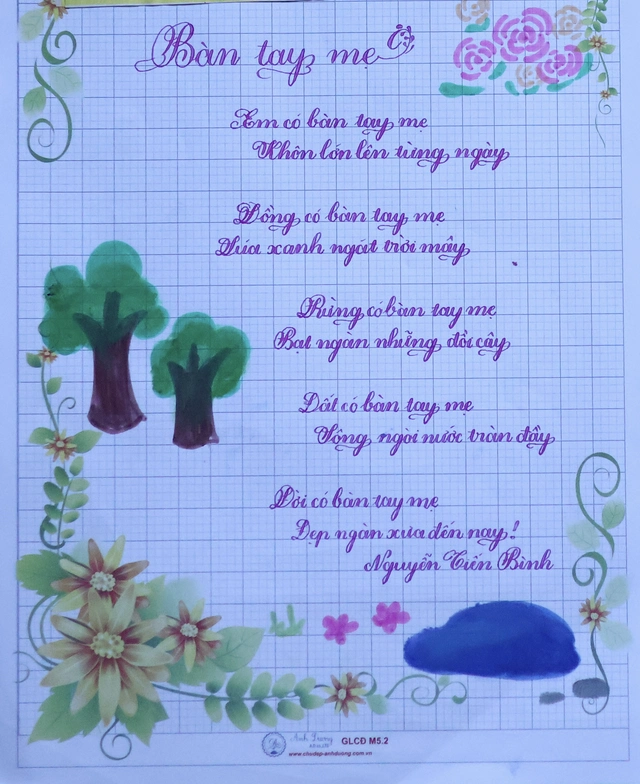 Bàn tay mẹ
Em có bàn tay mẹ
Khôn lớn lên từng ngày
Đồng có bàn tay mẹ
Lúa xanh ngát trời mây
Rừng có bàn tay mẹ
Bạt ngàn những đồi cây
Đất có bàn tay mẹ
Sông ngòi nước tràn đầy
Đời có bàn tay mẹ
Đẹp ngàn xưa đến nay!
Nguyễn Tiến Bình
GLCĐ M5.2
www.chudep-anhduong.com.vn